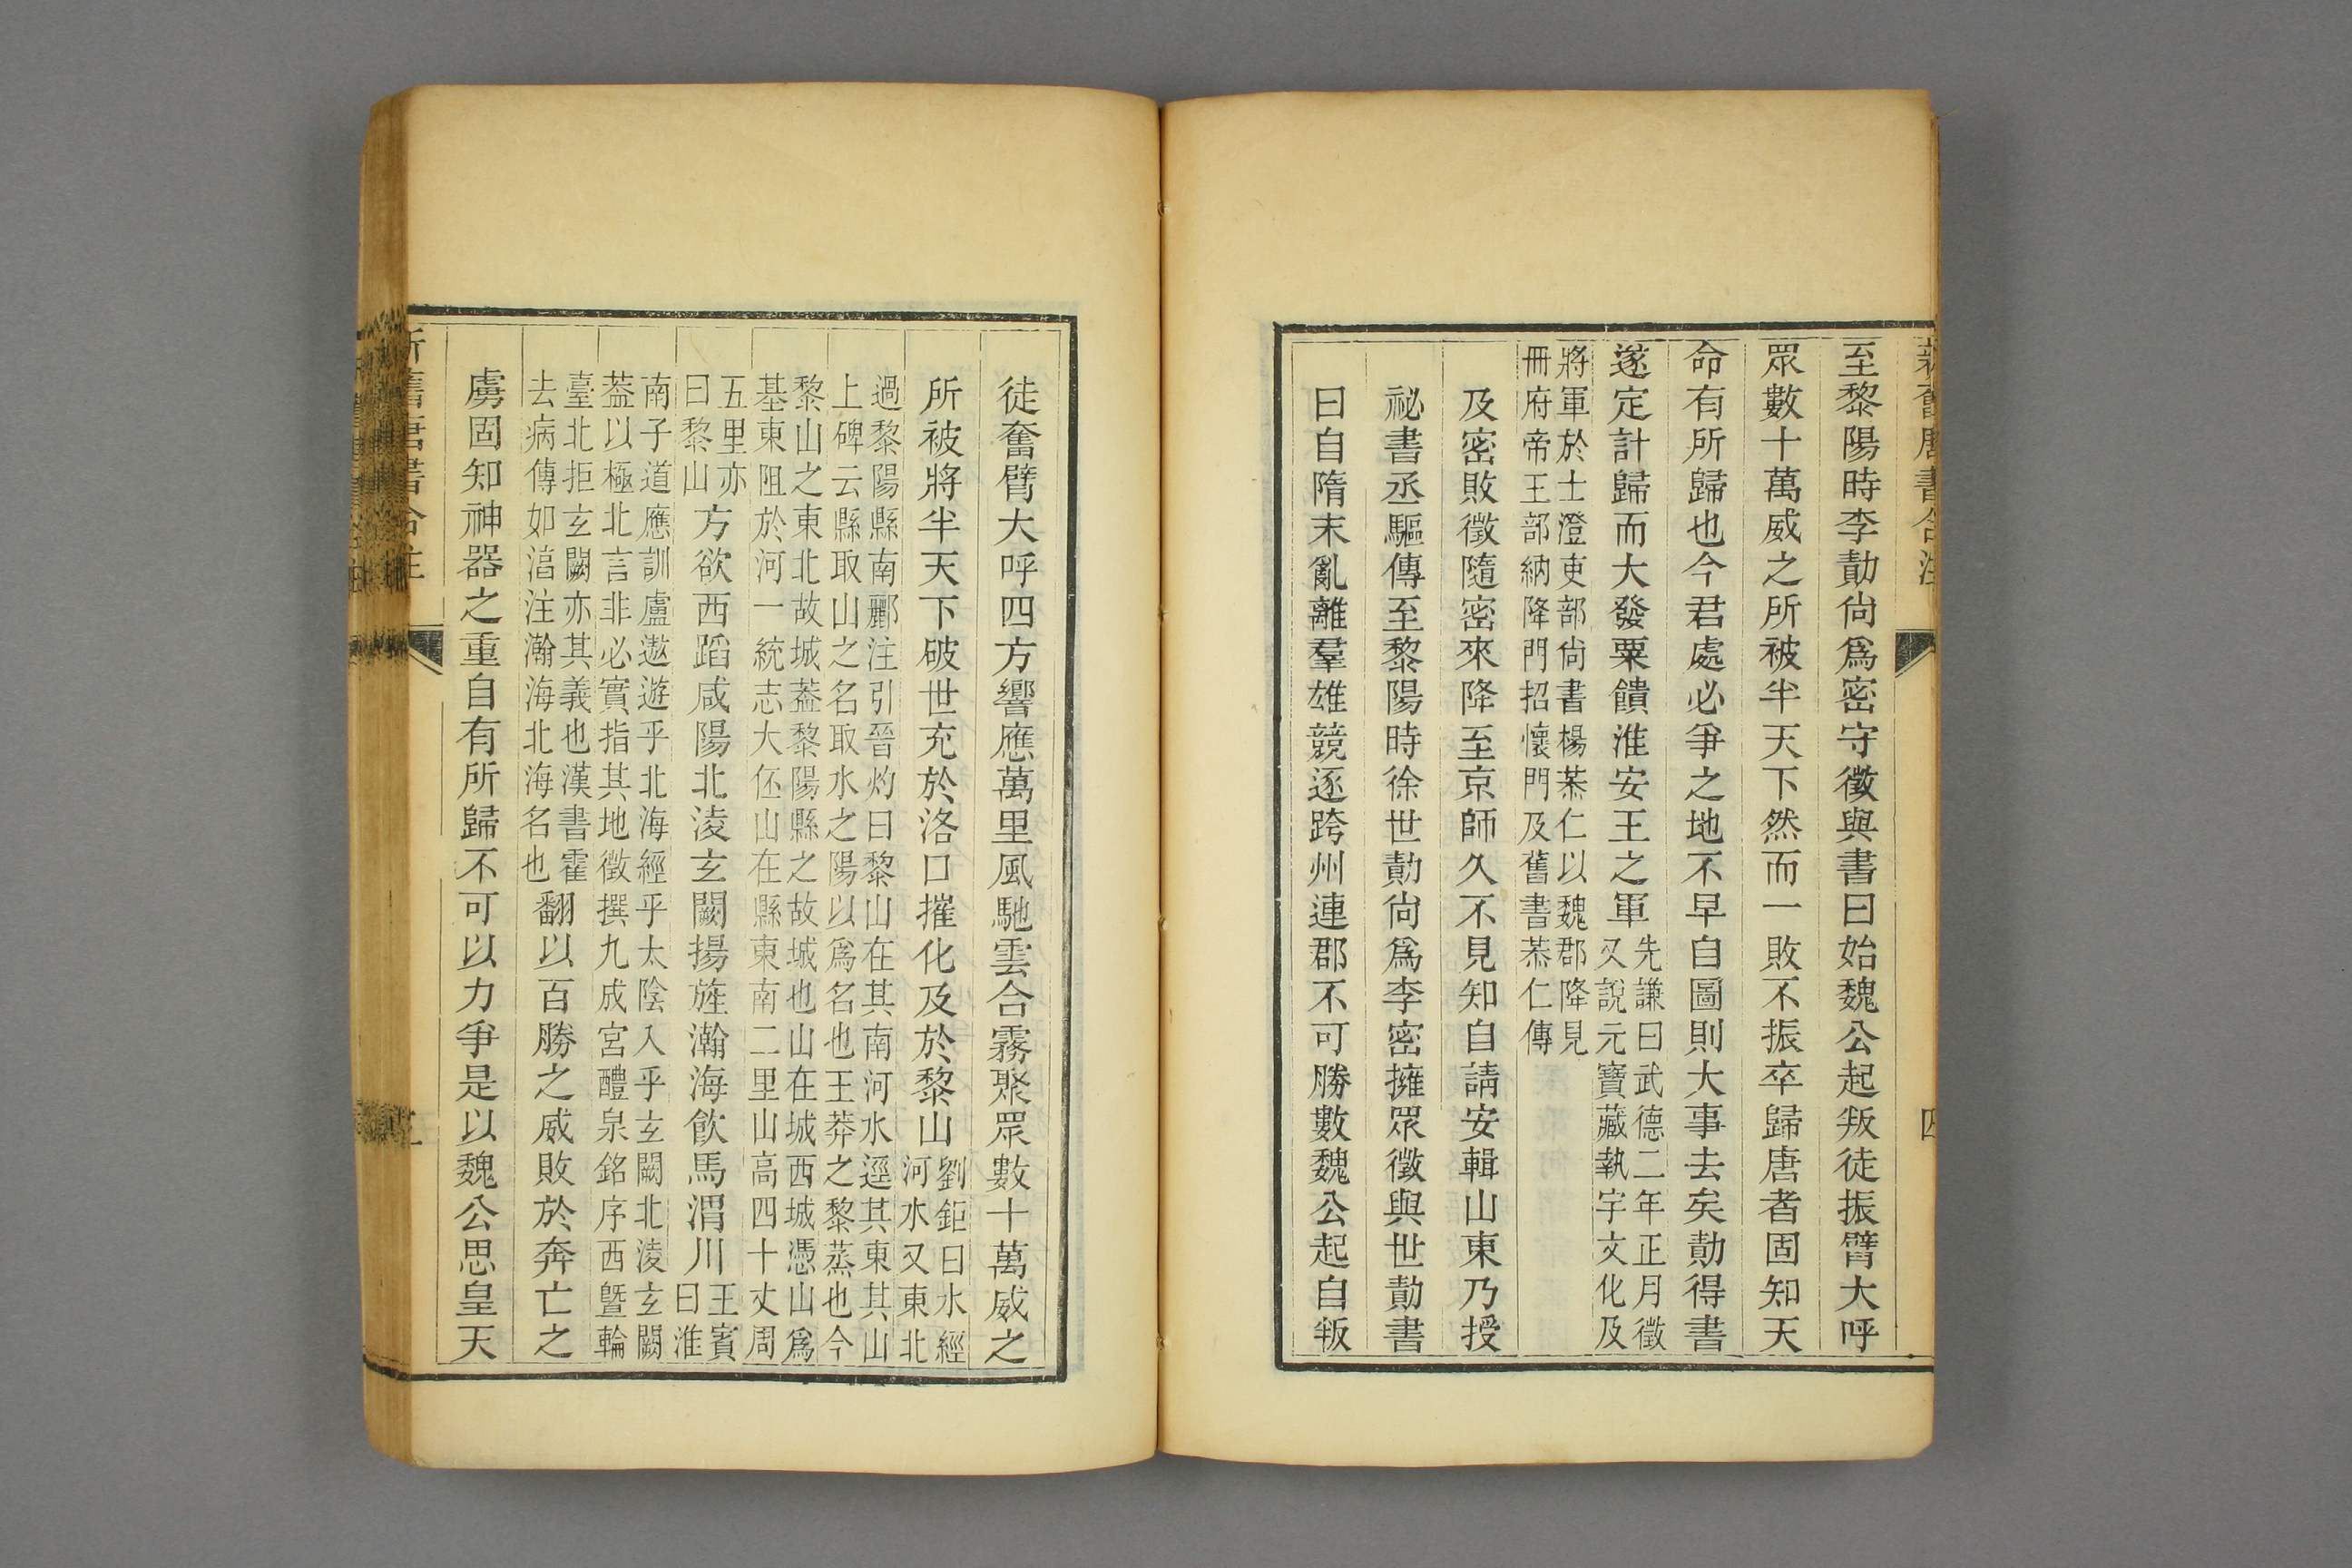 至黎陽時李勣尙爲密守徵與書曰始魏公起叛徒振臂大呼
眾數十萬威之所被半天下然而一敗不振卒歸唐者固知天
命有所歸也今君處必爭之地不早自圖則大事去矣勣得書
遂定計歸而大發粟饋淮安王之軍
先謙曰武德二年正月徵
又說元寶藏執宇文化及
將軍於士澄吏部尙書楊恭仁以魏郡降見
冊府帝王部納降門招懷門及舊書恭仁傳
及密敗徵隨密來降至京師久不見知自請安輯山東乃授
祕書丞驅傳至黎陽時徐世勣尙爲李密擁眾徵與世勣書
曰自隋末亂離羣雄競逐跨州連郡不可勝數魏公起自叛
徒奮臂大呼四方響應萬里風馳雲合霧聚眾數十萬威之
所被將半天下破世充於洛口摧化及於黎山
劉鉅曰水經
河水又東北
過黎陽縣南酈注引晉灼曰黎山在其南河水逕其東其山
上碑云縣取山之名取水之陽以爲名也王莽之黎蒸也今
黎山之東北故城葢黎陽縣之故城也山在城西城憑山爲
基東阻於河一統志大伾山在縣東南二里山高四十丈周
五里亦
曰黎山
方欲西蹈咸陽北淩玄闕揚旌瀚海飮馬渭川
王賓
曰淮
南子道應訓盧遨遊乎北海經乎太陰入乎玄闕北淩玄闕
葢以極北言非必實指其地徵撰九成宮醴泉銘序西曁輪
臺北拒玄闕亦其義也漢書霍
去病傳如湻注瀚海北海名也
翻以百勝之威敗於奔亡之
虜固知神器之重自有所歸不可以力爭是以魏公思皇天